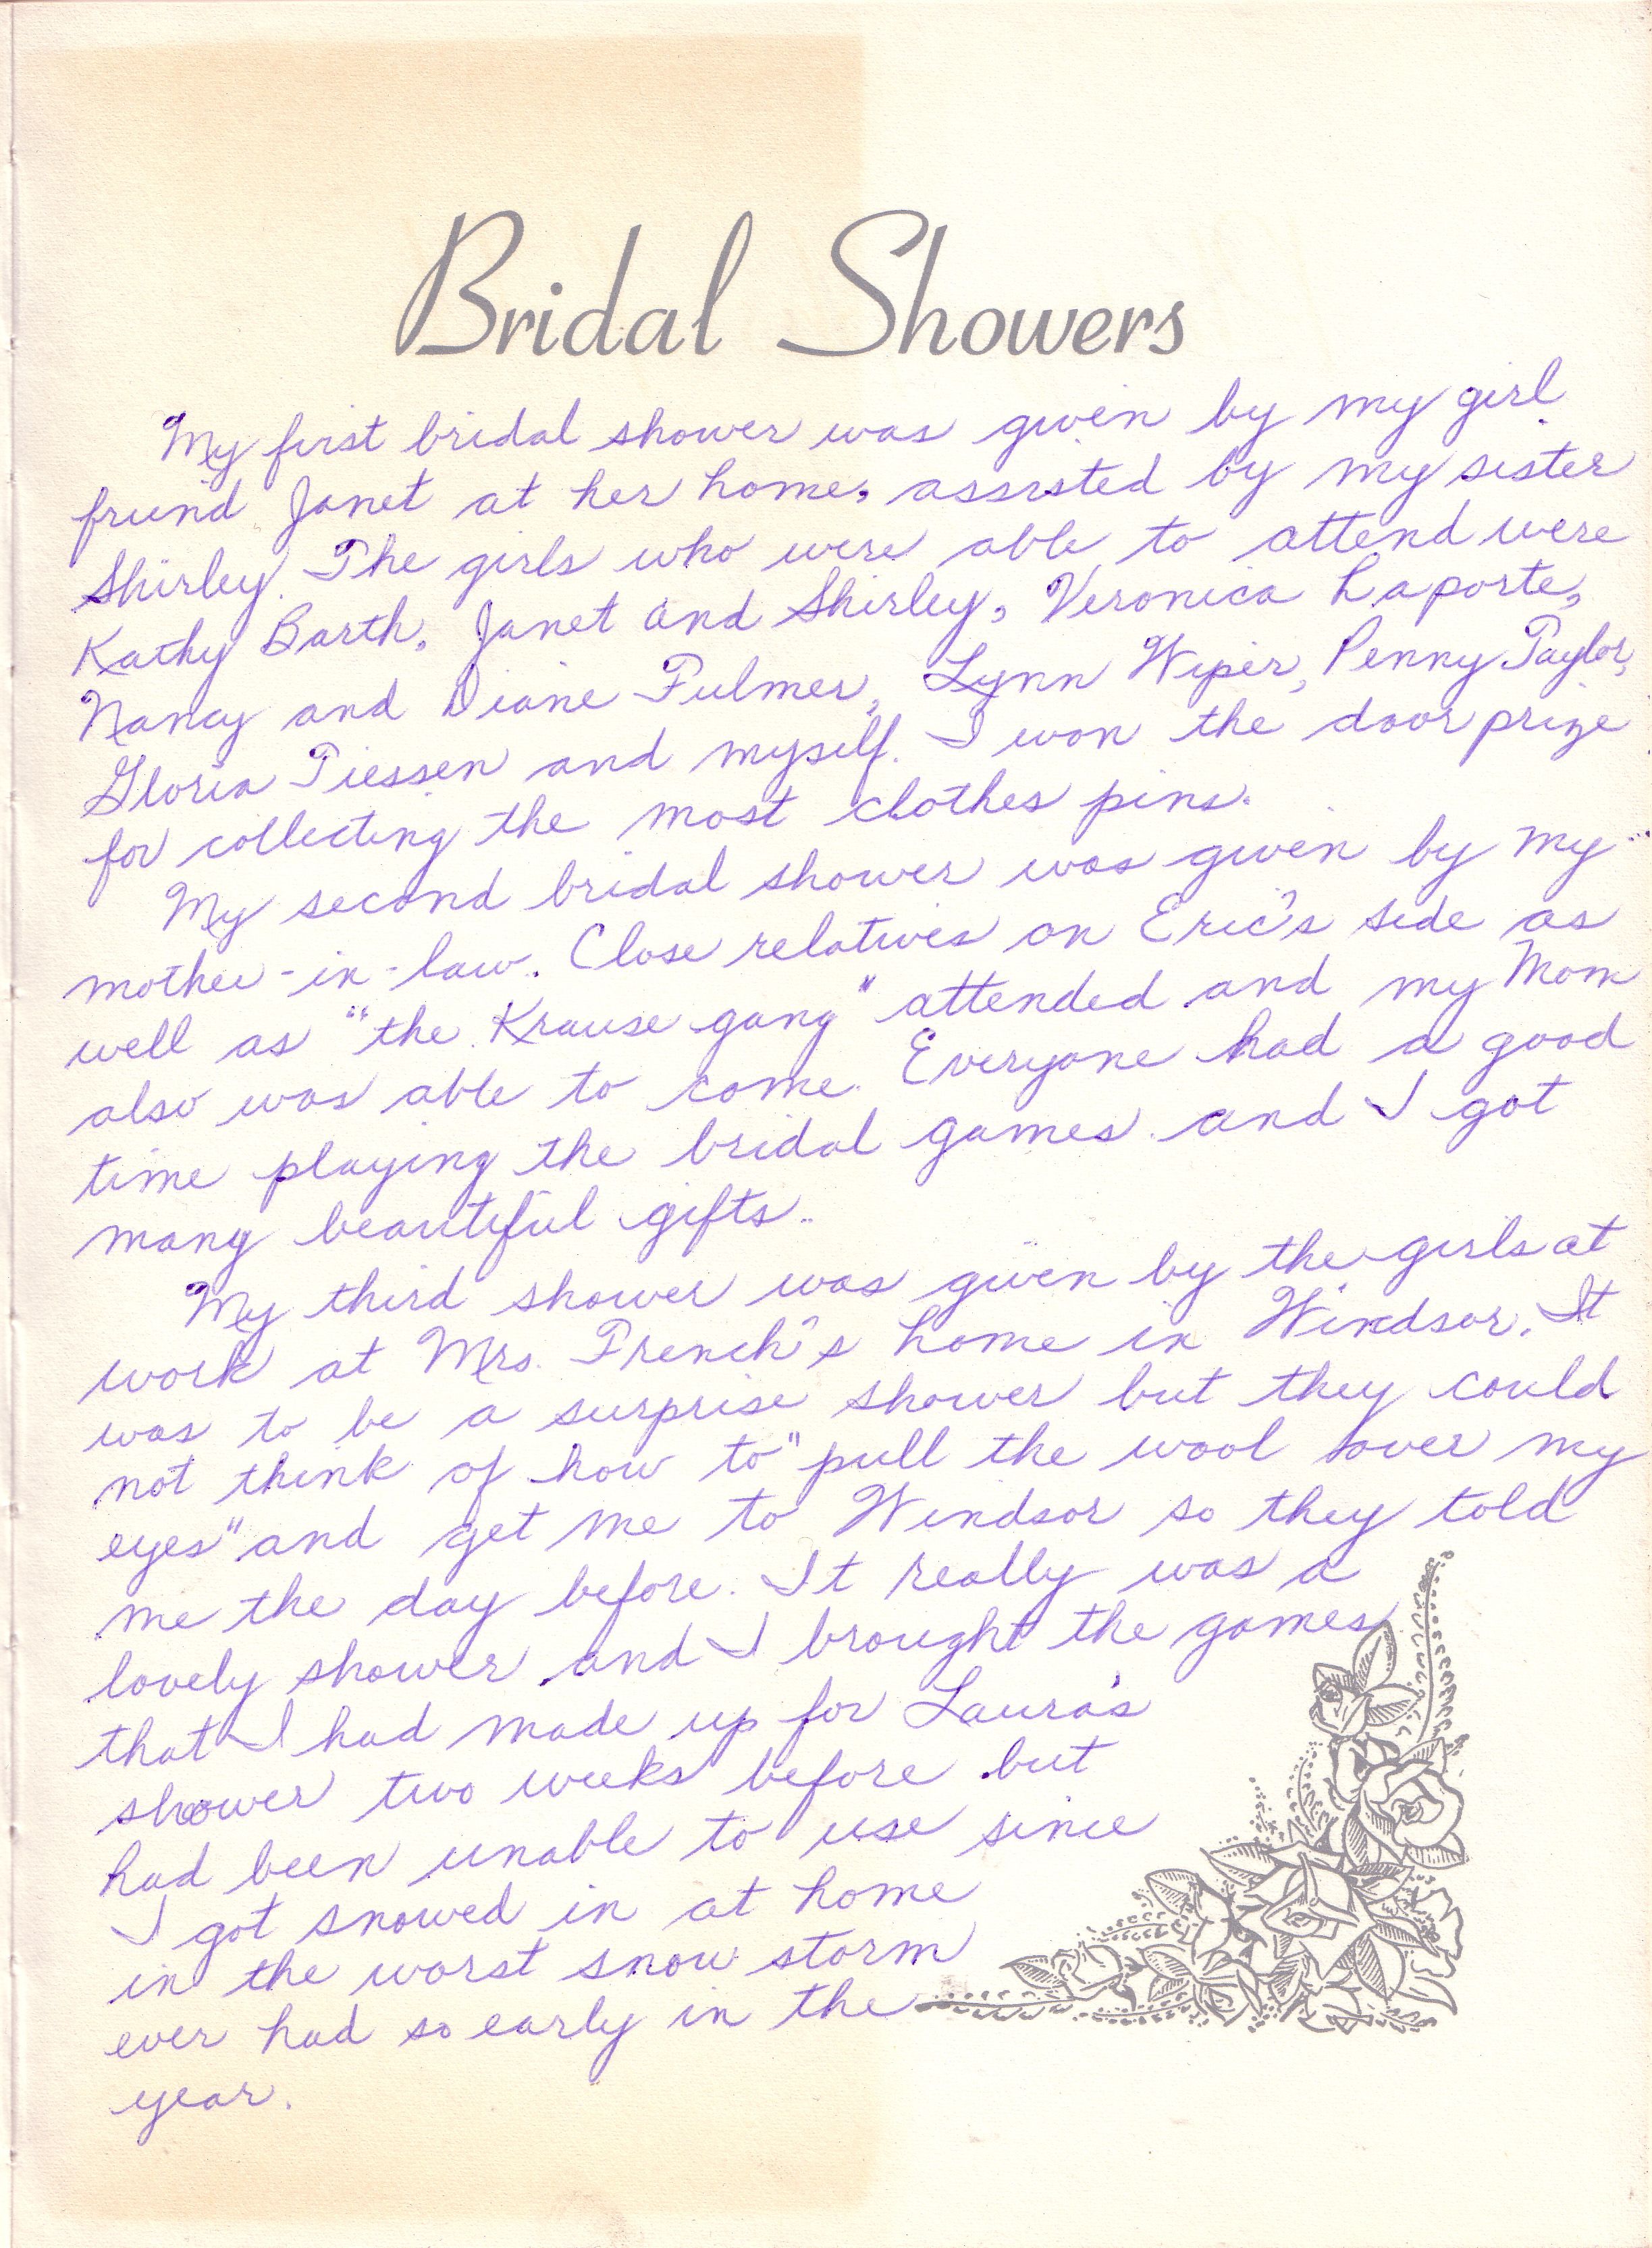 Bridal Showers
My first bridal shower was given by my girl
friend Janet at her home, assisted by my sister
Shirley. The girls who were able to attend were
Kathy Barth, Janet and Shirley, Veronica Laporte,
Nancy and Diane Fulmer, Lynn Wiper, Penny Taylor,
Gloria Tiessen and myself. I won the door prize
for collecting the most clothes pins.
My second bridal shower was given by my
mother-in-law. Close relatives on Eric's side as
well as "the Krause gang" attended and my Mom
also was able to come. Everyone had a good
time playing the bridal games and I got
many beautiful gifts.
My third shower was given by the girls at
work at Mrs. French's home in Windsor. It
was to be a surprise shower but they could
not think of how to "pull the wool over my
eyes" and get me to Windsor so they told
me the day before. It really was a
lovely shower and I brought the games
that I had made up for Laura's
shower two weeks before but
had been unable to use since
I got snowed in at home
in the worst snow storm
ever had so early in the
year.